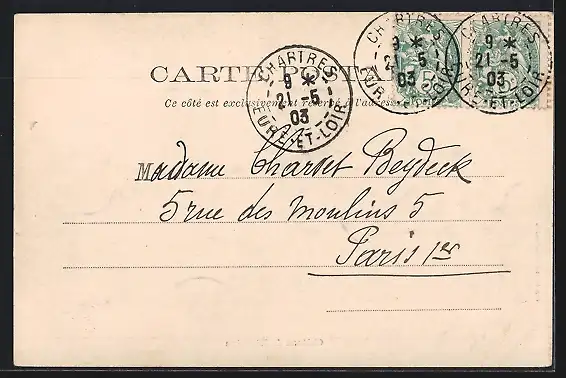 CHARTRES
9 *
21 -5
03
EURE-ET-LOIR
CHARTRES
9 *
2 5
03
EURE LOIR
CHARTRES
9 *
21 -5
03
EURE-ET-LOIR
CARTE POSTALE
Ce côté est exclusivement réservé à l'adresse
Madame Charset Beydeck
5 rue des Moulins 5
Paris 1er